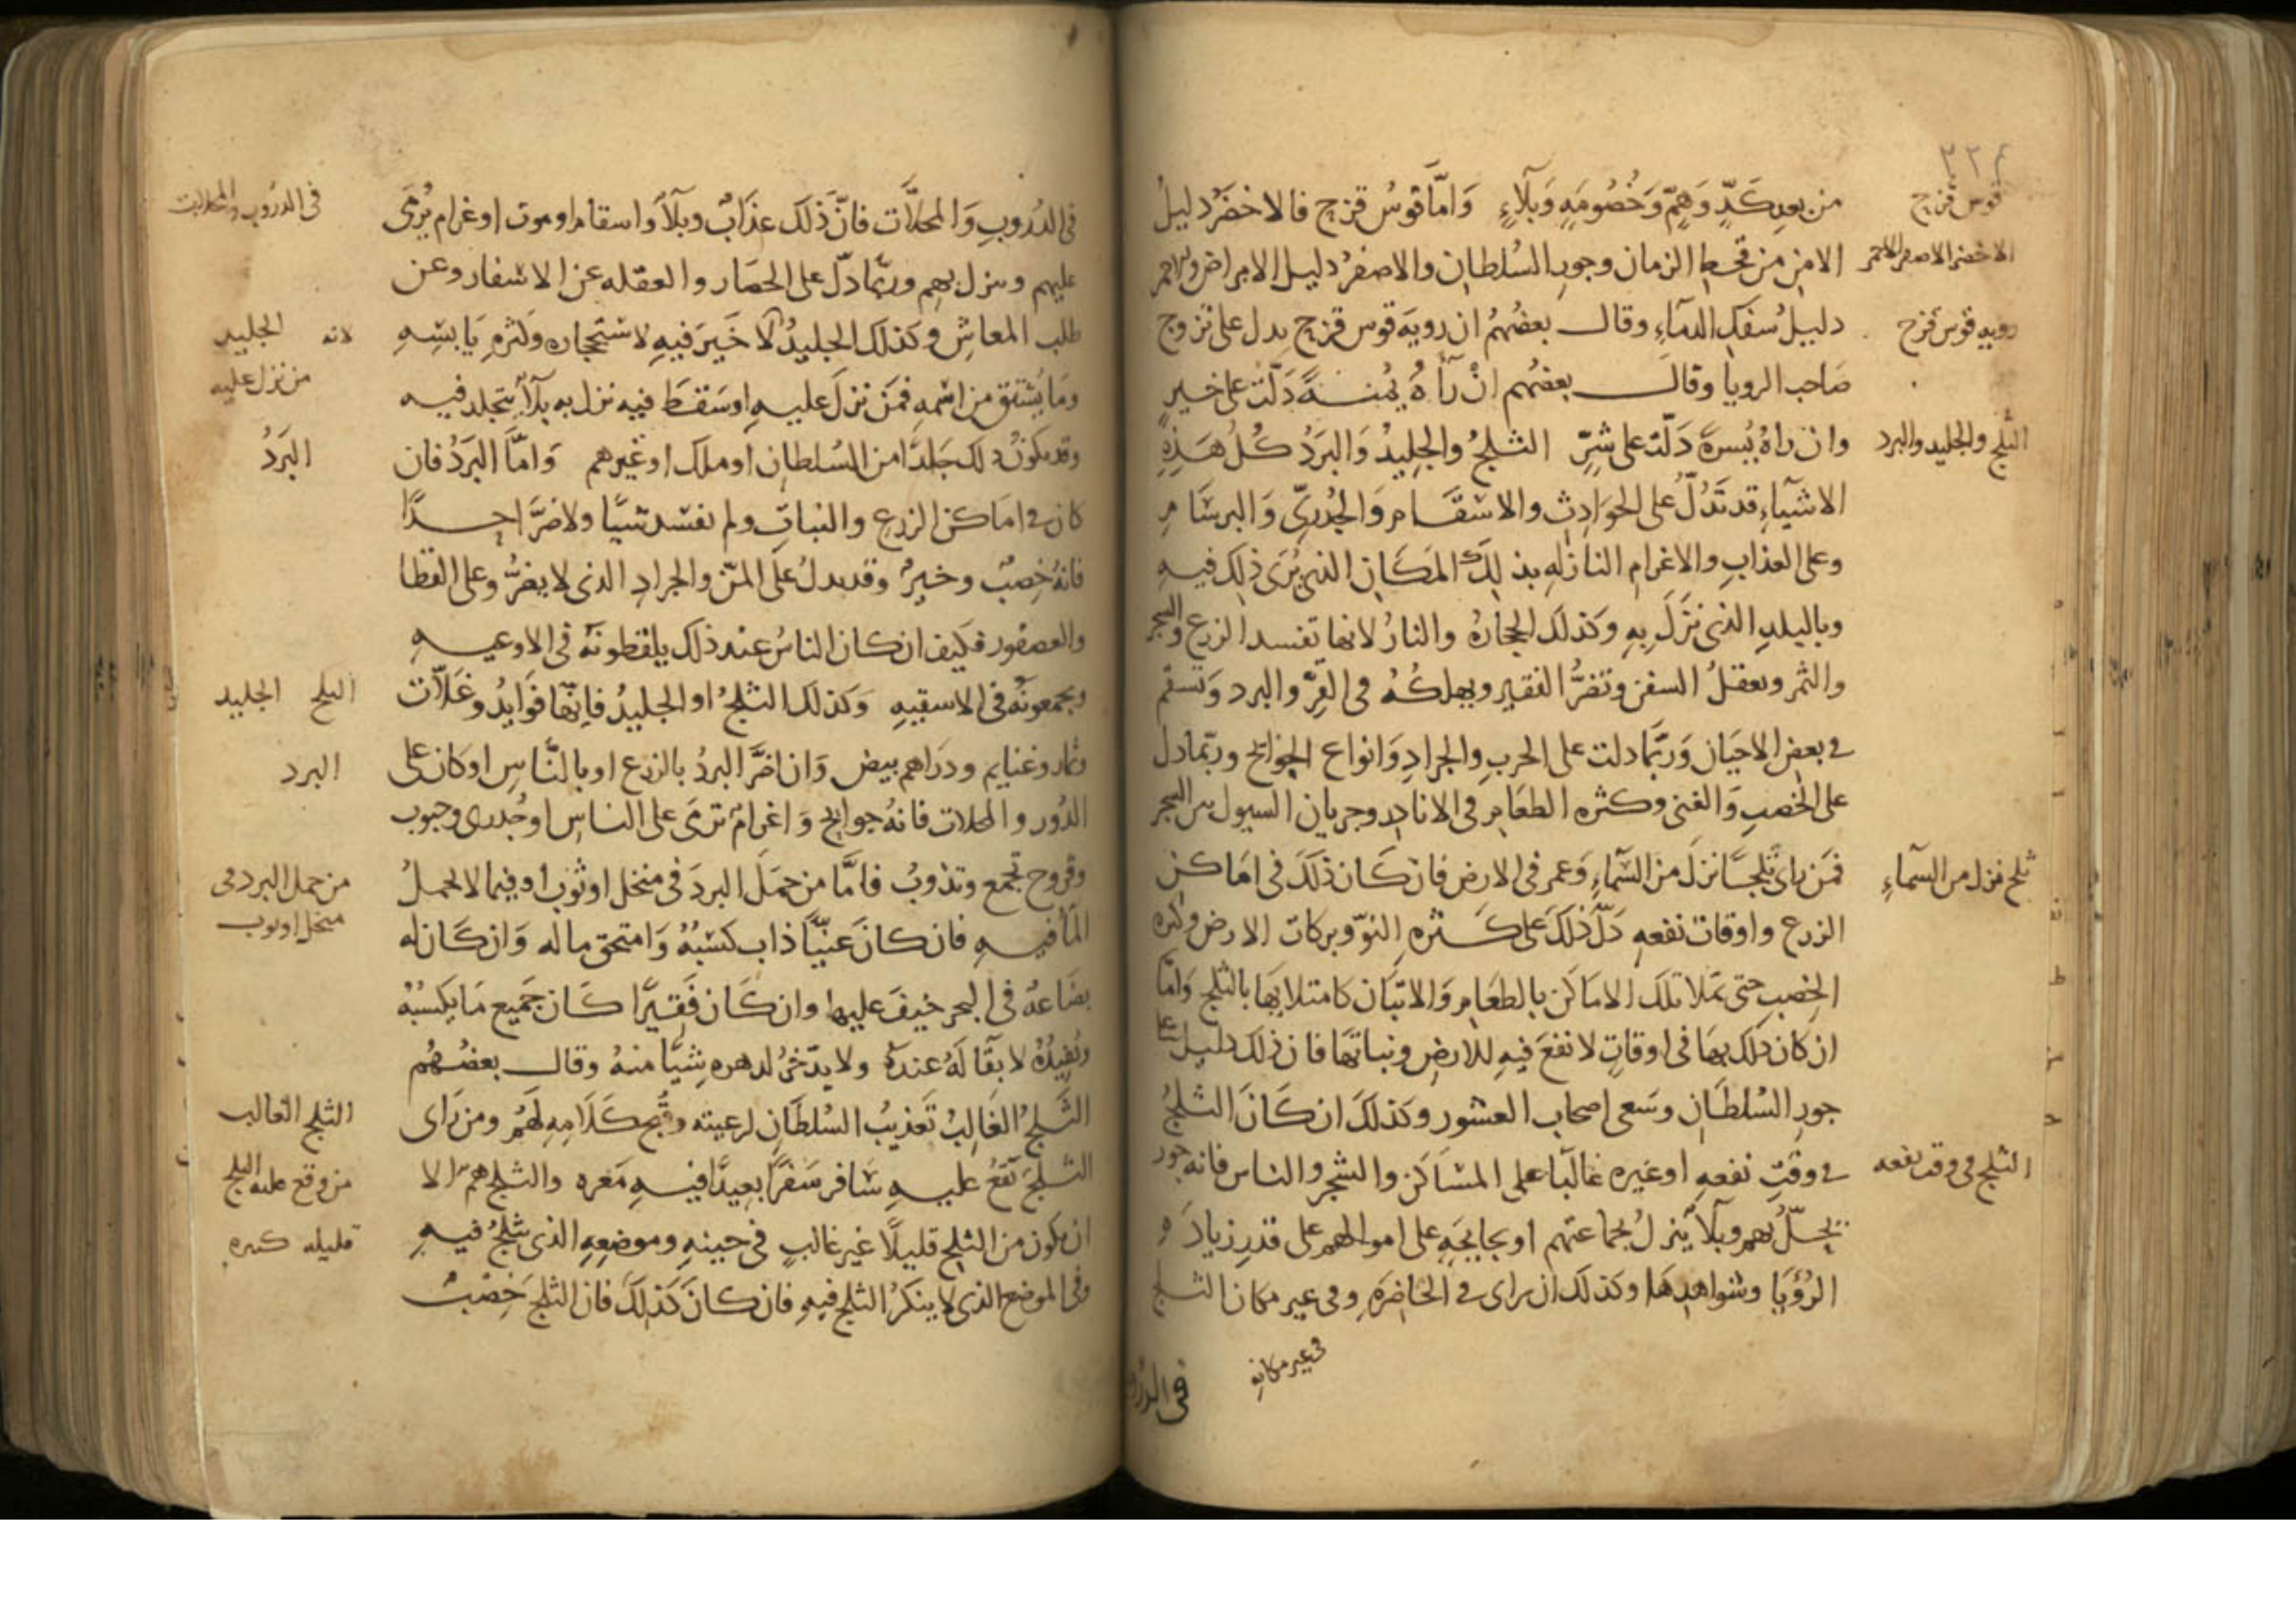 ٢٢٤
من بعد كَدٍّ وَهَمٍّ وَخُصُومَةٍ وَبَلَآءٍ وَامَّا قوسُ قزح فالاخضَرُ دليلُ
قوس قزح
الامن من قحط الزمان وجور السُلطان والاصفرُ دليل الامراض والاحمر
الاخضر الاصفر الاحمر
دليلُ سفك الدمآءِ وقال بعضُهُم ان روية قوس قزح يدل على تزوج
رويه قوس قزح
صَاحب الرويا وقال بعضُهم انْ رَآهُ يُمنةً دَلَّت على خيرٍ
وان راهُ يُسرةً دَلّت على شرٍّ الثلجُ والجليدُ وَالبَرَدُ كُلُ هَذِهِ
الثلج والجليد والبرد
الاشيآءِ قد تَدُلّ على الحوَادث والاسقَام وَالجُدَرِىّ وَالبرسَام
وعلى العذاب والاغرام النازله بذلِكَ المَكَانِ الذى يُرَى ذلك فيهِ
وبالبلدِ الذى نَزَلَ بهِ وكذلكَ الحجارَةُ والنارُ لانها تفسد الزرع والشجر
والثمر وتعقلُ السفن وتضرُّ الفقير ويهلكُهُ فى القُرِّ والبرد وَتسقم
فى بعض الاحيَان وَربَّما دلت على الحربِ والجرادِ وَانواع الجوايح وربّما دل
على الخصبِ وَالغنى وكثره الطعَامِ فى الانادر وجريان السيول بين الشجر
فمَن راى ثَلجًا نزلَ من السَّمآءِ وَعمّ فى الارض فان كَان ذلَك فى امَاكن
ثلج نزل من السمآءِ
الزرع واوقات نفعهِ دَلّ ذلكَ على كَثره النوّ وبركات الارض وكثره
الخصبِ حتى تملا تلكَ الامَاكن بالطعَامِ وَالاتبَان كامتلايهَا بالثلج وَامّا
ان كان ذلك بهَا فى اوقاتٍ لا نفعَ فيهِ للارض ونباتهَا فان ذلك دليل على
جورِ السُلطَانِ وسَعى اصحاب العشور وكذلكَ ان كَانَ الثلجُ
فى وقتِ نفعهِ او غيره غالبًا على المسَاكن والشجر والناس فانه جور
الثلج فى وقت نفعه
يحلّ بهم وبلآ ينزلُ بجماعتهم او بجايحَةٍ على اموالهم على قدرِ زيادَه
الرُؤيَا وشواهدهَا وكذلك ان راى فى الحَاضرَهِ وفى غير مكان الثلج
فى غير مكانِه
فى الدُروب
فى الدُروبِ وَالمحلَّات فانَّ ذلكَ عذَابٌ وبلَآ واسقام او موت او غرام يُرمَى
فى الدُروب والمحلات
عليهم وينزل بهم وربّما دلّ على الحصَار والعقله عن الاسفار وعن
طلب المعاشِ وكذلك الجليدُ لَا خَيرَ فيهِ لاستحجاره وكثره يَابسِهِ
لانه الجليد
ومَا يُشتق من اسْمهِ فمَن نزلَ عليهِ او سَقطَ فيه نزل به بلآ يتجلد فيه
من نزل عليه
وقد يكونُ ذلك جَلدًا من السُلطانِ او ملك او غيرهم وَامّا البَرَدُ فان
البَرَدُ
كان فى امَاكن الزرع والنباتِ ولم يفسد شيًا ولا ضرَّ احدًا
فانهُ خِصبٌ وخيرٌ وقد يدلُ علَى المنّ والجراد الذى لا يضرُّ وعلى القطا
والعصفور فكيف ان كان الناسُ عند ذلك يلقطونَهُ فى الاوعيهِ
ويجمعونَه فى الاسقيهِ وَكذلك الثلجُ او الجليدُ فانّها فوَايدُ وغَلّات
الثلج الجليد
وثمار وغنايم ودرَاهم بيض وَان اضرَّ البردُ بالزرع او بالنَّاس او كان على
البرد
الدُور والمحلات فانهُ جوايح وَاغرامٌ ترمَى على الناس او جُدرى وحبوب
وقروح تجَمع وتذوبُ فامَّا من حمَلَ البردَ فى منخل او ثوب او فيما لا يحملُ
من حمل البرد فى
المآ فيهِ فان كانَ غنيًّا ذاب كسبُهُ وَامتحق ماله وَان كَان له
منخل او ثوب
بضَاعهٌ فى البحر خيفَ عليها وان كَان فَقيرًا كَان جَميع مَا يكسبُهُ
ويُفيدُهُ لا بقَآ لَهُ عندهُ ولا يدّخرُ لدهره شيًا منهُ وقال بعضهُم
الثَّلجُ الغَالِبُ تَعذيبُ السُلطَان لرعيته وقُبح كَلَامِهِ لَهُم ومن رَاى
الثلج الغالب
الثلجَ يَقَعُ عليهِ سَافر سَفرًا بعيدًا فيهِ مَعره والثلج همّ الا
من وقع عليه الثلج
ان يكون من الثلج قليلًا غير غالبٍ فى حينهِ وموضعهِ الذى يثلجُ فيهِ
قليله كثيره
وفى الموضع الذى لا ينكَرُ الثلج فيهِ فان كانَ كذلكَ فان الثلجَ خِصْبٌ